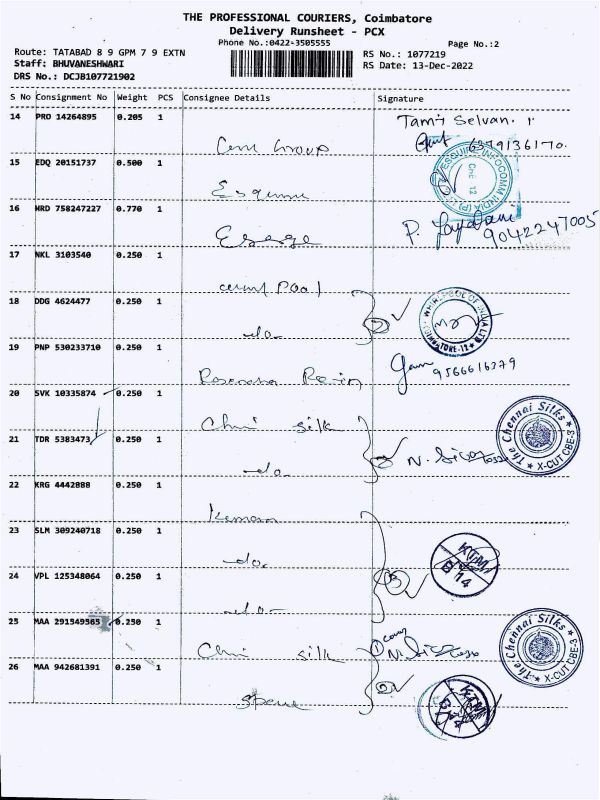 THE PROFESSIONAL COURIERS, Coimbatore
Delivery Runsheet - PCX
Phone No.:0422-3505555
Page No.:2
Route: TATABAD 8 9 GPM 7 9 EXTN
RS No.: 1077219
Staff: BHUVANESHWARI
RS Date: 13-Dec-2022
DRS No.: DCJB107721902
S No Consignment No Weight PCS Consignee Details Signature
14 PRO 14264895 0.205 1
Tamil Selvan. r
6379136170.
Group
15 EDQ 20151737 0.500 1
ESQUIRE INFOCOMM INDIA (P)
16 HRD 758247227 0.770 1
P.
9042247005
17 NKL 3103540 0.250 1
Pool
18 DDG 4624477 0.250 1
WHIRLPOOL OF INDIA LTD
do.
19 PNP 530233710 0.250 1
9566616379
20 SVK 10335874 0.250 1
Chni silk
The Chennai Silks
X-CUT CBE-3
21 TDR 5383473 0.250 1
N. Siva
do
22 KRG 4442888 0.250 1
23 SLM 309240718 0.250 1
do.
KTM
24 VPL 125348064 0.250 1
do
25 MAA 291549565 0.250 1
Chni silk
The Chennai Silks
X-CUT CBE-3
26 MAA 942681391 0.250 1
KTM